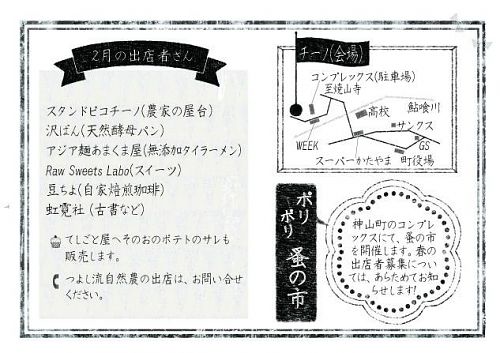 2月の出店者さん
スタンドピコチーノ(農家の屋台)
沢ぱん(天然酵母パン)
アジア麺あまくま屋(無添加タイラーメン)
Raw Sweets Labo(スイーツ)
豆ちよ(自家焙煎珈琲)
虹霓社 (古書など)
てしごと屋へそのおのポテトのサレも
販売します。
つよし流自然農の出店は、お問い合せ
ください。
チーノ(会場)
コンプレックス(駐車場)
至焼山寺
高校
鮎喰川
サンクス
WEEK
GS
スーパーかたやま
町役場
ポリ
ポリ
蚤の市
神山町のコンプレ
ックスにて、蚤の市
を開催します。春の
出店者募集につい
ては、あらためてお知
らせします!